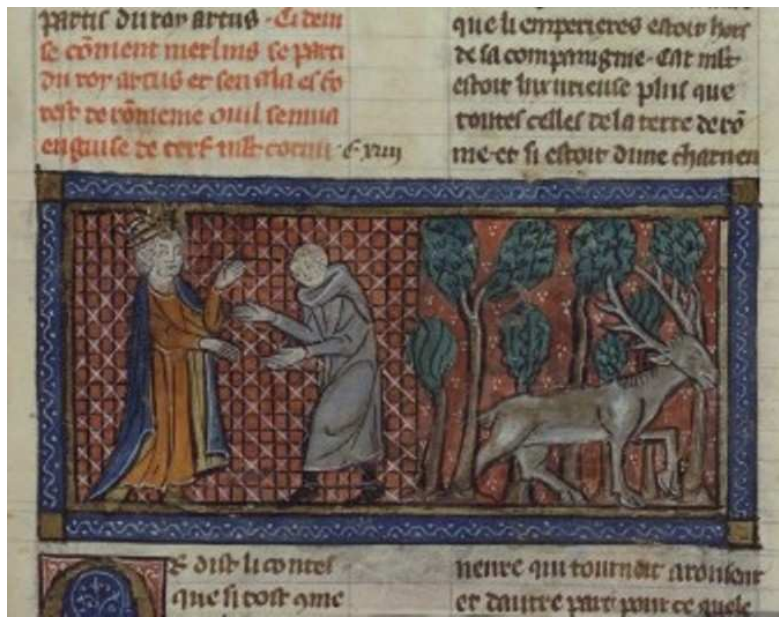 partis du roy artus · Ci devi
se cōment merlins se parti
du roy artus et sen ala es fo
rest de rōmenie ou il se mua
en guise de cerf
que li emperieres estoit hors
de sa compaingnie · Car mlt
estoit luxurieuse plus que
toutes celles de la terre de rō
me · et si estoit dune
E dist li contes
que si tost 9me
et dautre part pour ce quele